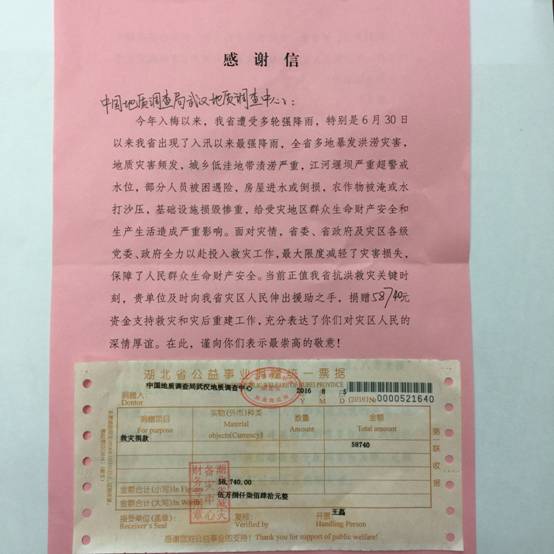 感谢信
中国地质调查局武汉地质调查中心：
今年入梅以来，我省遭受多轮强降雨，特别是6月30日
以来我省出现了入汛以来最强降雨，全省多地暴发洪涝灾害，
地质灾害频发，城乡低洼地带渍涝严重，江河堰坝严重超警戒
水位，部分人员被困遇险，房屋进水或倒损，农作物被淹或水
打沙压，基础设施损毁惨重，给受灾地区群众生命财产安全和
生产生活造成严重影响。面对灾情，省委、省政府及灾区各级
党委、政府全力以赴投入救灾工作，最大限度减轻了灾害损失，
保障了人民群众生命财产安全。当前正值我省抗洪救灾关键时
刻，贵单位及时向我省灾区人民伸出援助之手，捐赠58740元
资金支持救灾和灾后重建工作，充分表达了你们对灾区人民的
深情厚谊。在此，谨向你们表示最崇高的敬意！
湖北省公益事业捐赠统一票据
中国地质调查局武汉地质调查中心
捐赠人
Donor
2016 8 5
Y M D
(2016)№0000521640
捐赠项目 实物(外币)种类 数量 金额
For purpose Material objects(Currency) Amount Total amount
救灾捐款 58740
58,740.00
金额合计(小写)In Figures
伍万捌仟柒佰肆拾元整
金额合计(大写)In Words
接受单位(盖章): 复核: 开票: 王磊
Receiver's Seal Verified by Handling Person
感谢您对公益事业的支持！Thank you for support of public welfare!
第一联 收据